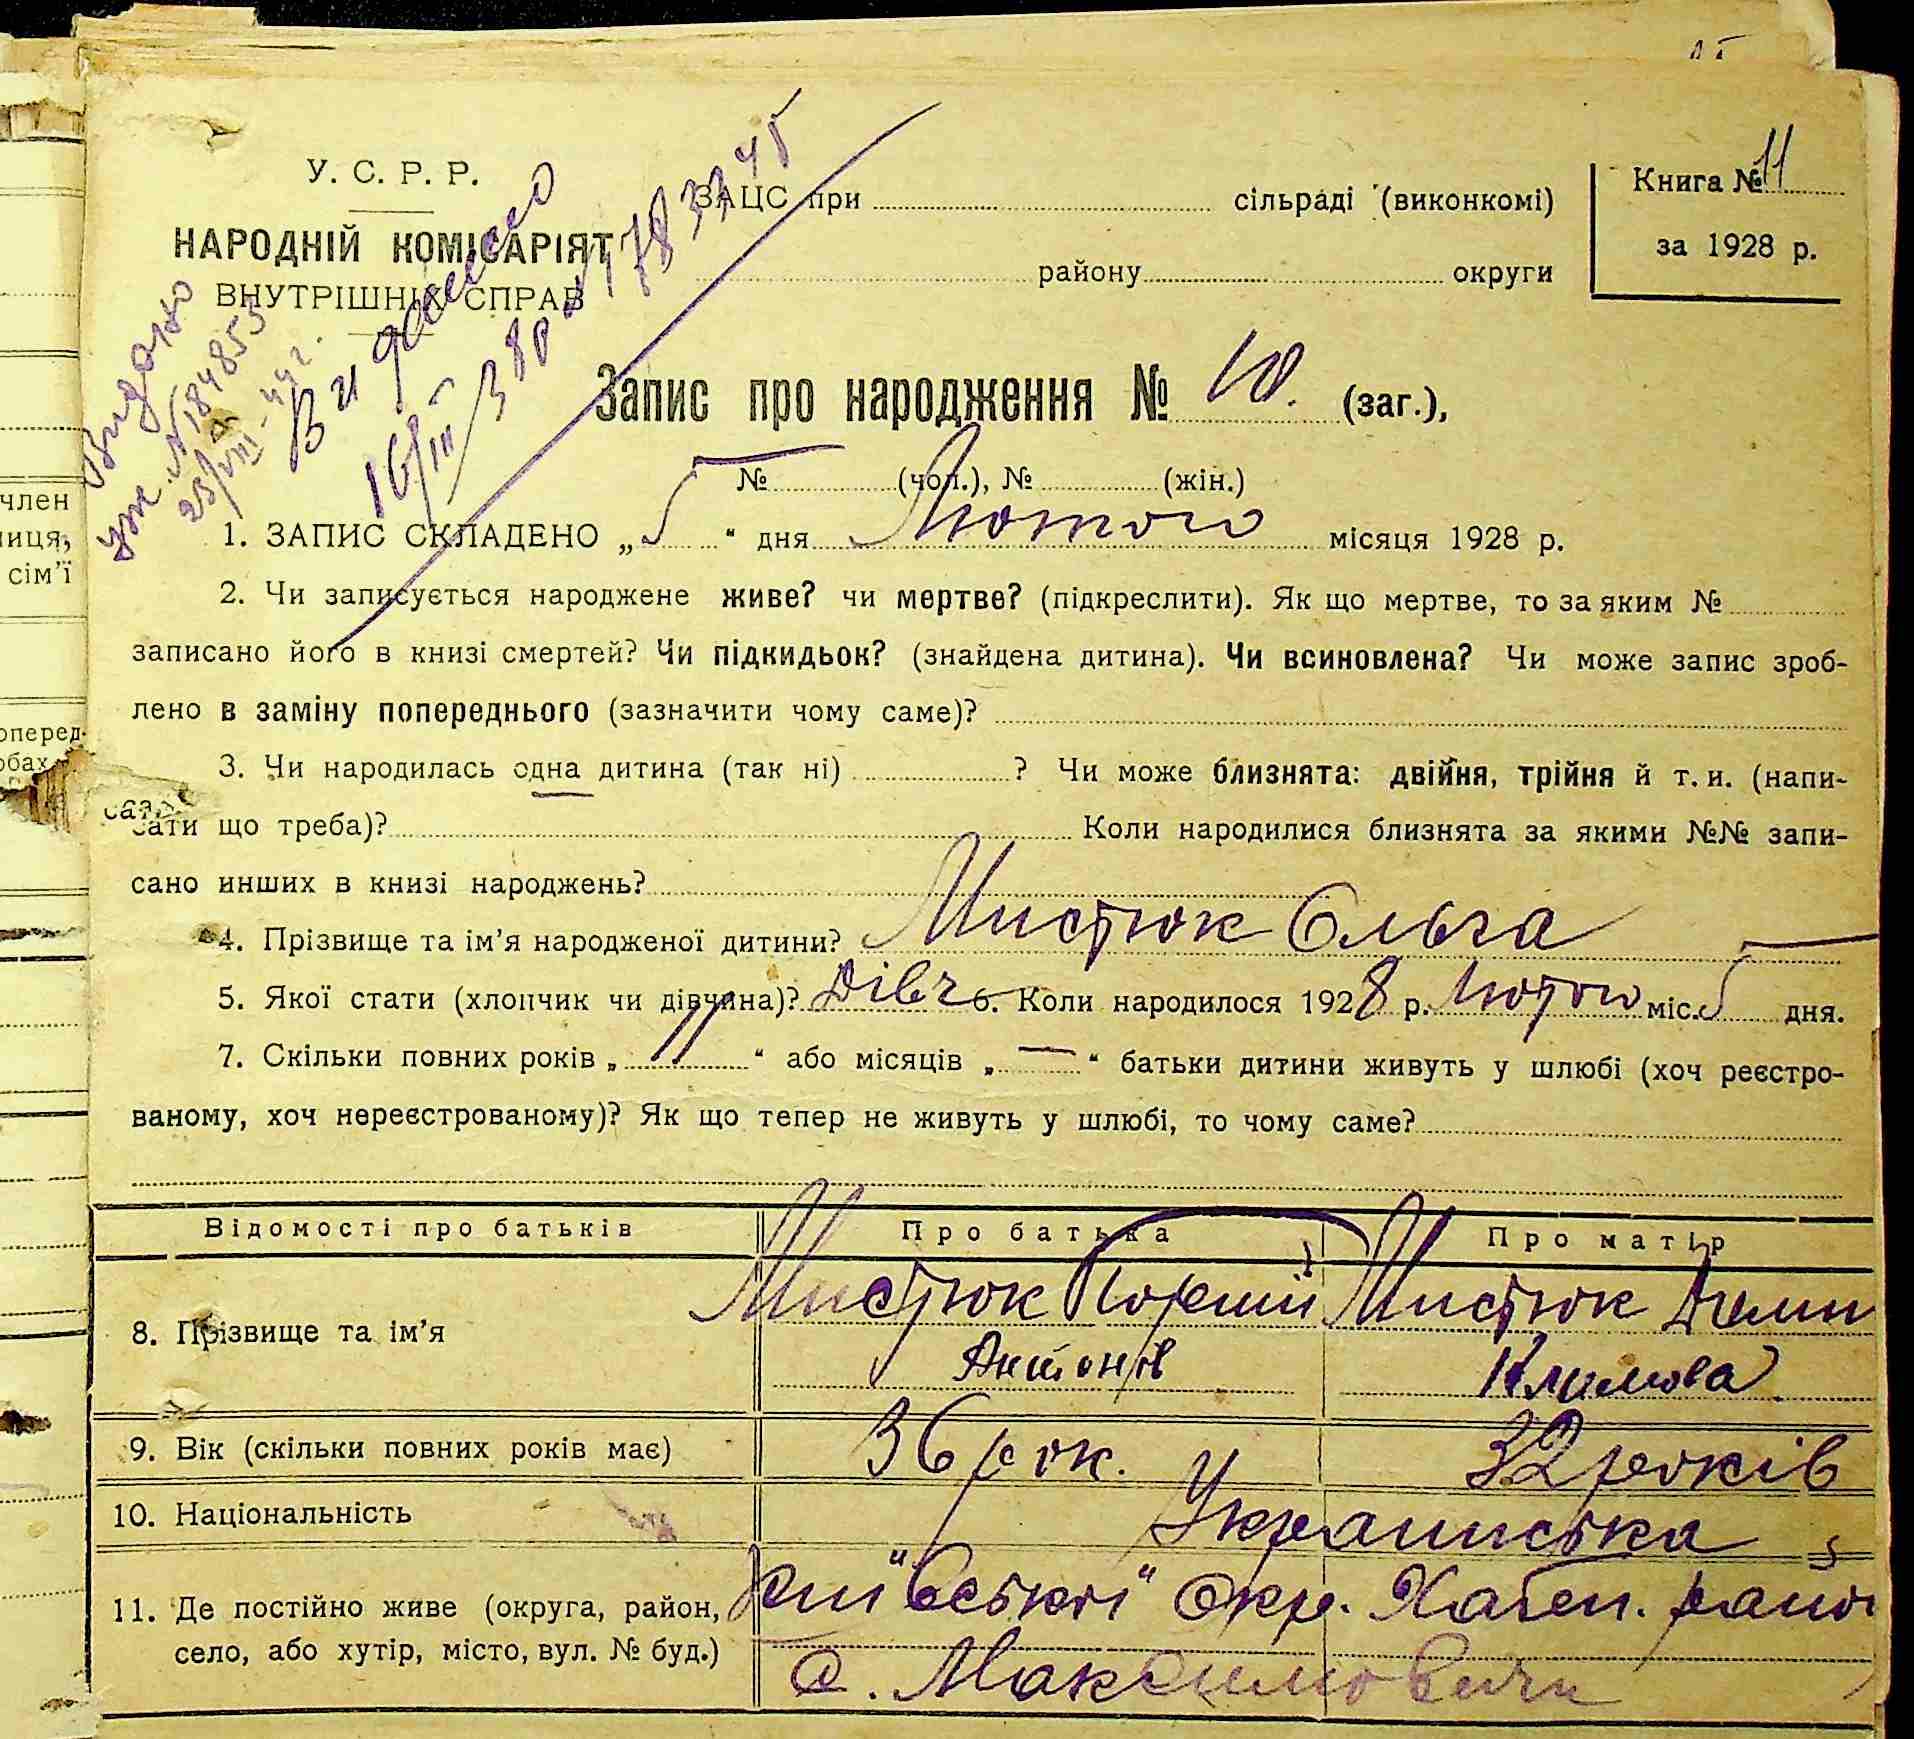 У. С. Р. Р.
НАРОДНІЙ КОМІСАРІЯТ
ВНУТРІШНІХ СПРАВ
ЗАЦС при сільраді (виконкомі)
району округи
Книга № 11
за 1928 р.
Видано
184855
Видано
16/III
Запис про народження № 10. (заг.),
№ (чол.), № (жін.)
1. ЗАПИС СКЛАДЕНО „5" дня Лютого місяця 1928 р.
2. Чи записується народжене живе? чи мертве? (підкреслити). Як що мертве, то за яким №
записано його в книзі смертей? Чи підкидьок? (знайдена дитина). Чи всиновлена? Чи може запис зроб-
лено в заміну попереднього (зазначити чому саме)?
3. Чи народилась одна дитина (так ні) ? Чи може близнята: двійня, трійня й т. и. (напи-
сати що треба)? Коли народилися близнята за якими №№ запи-
сано инших в книзі народжень?
4. Прізвище та ім'я народженої дитини? Мистюк Ольга
5. Якої стати (хлопчик чи дівчина)? Дівч 6. Коли народилося 1928 р. Лютого міс. 5 дня.
7. Скільки повних років „11" або місяців „—" батьки дитини живуть у шлюбі (хоч реєстро-
ваному, хоч нереєстрованому)? Як що тепер не живуть у шлюбі, то чому саме?
Відомості про батьків Про батька Про матір
8. Прізвище та ім'я Мистюк Мистюк
Антонів Климова
9. Вік (скільки повних років має) 36 рок. 32 років
10. Національність Украинська
11. Де постійно живе (округа, район, окр. Хабен. район
село, або хутір, місто, вул. № буд.) с. Максимовичи
член
иця,
сім'ї
оперед-
обах